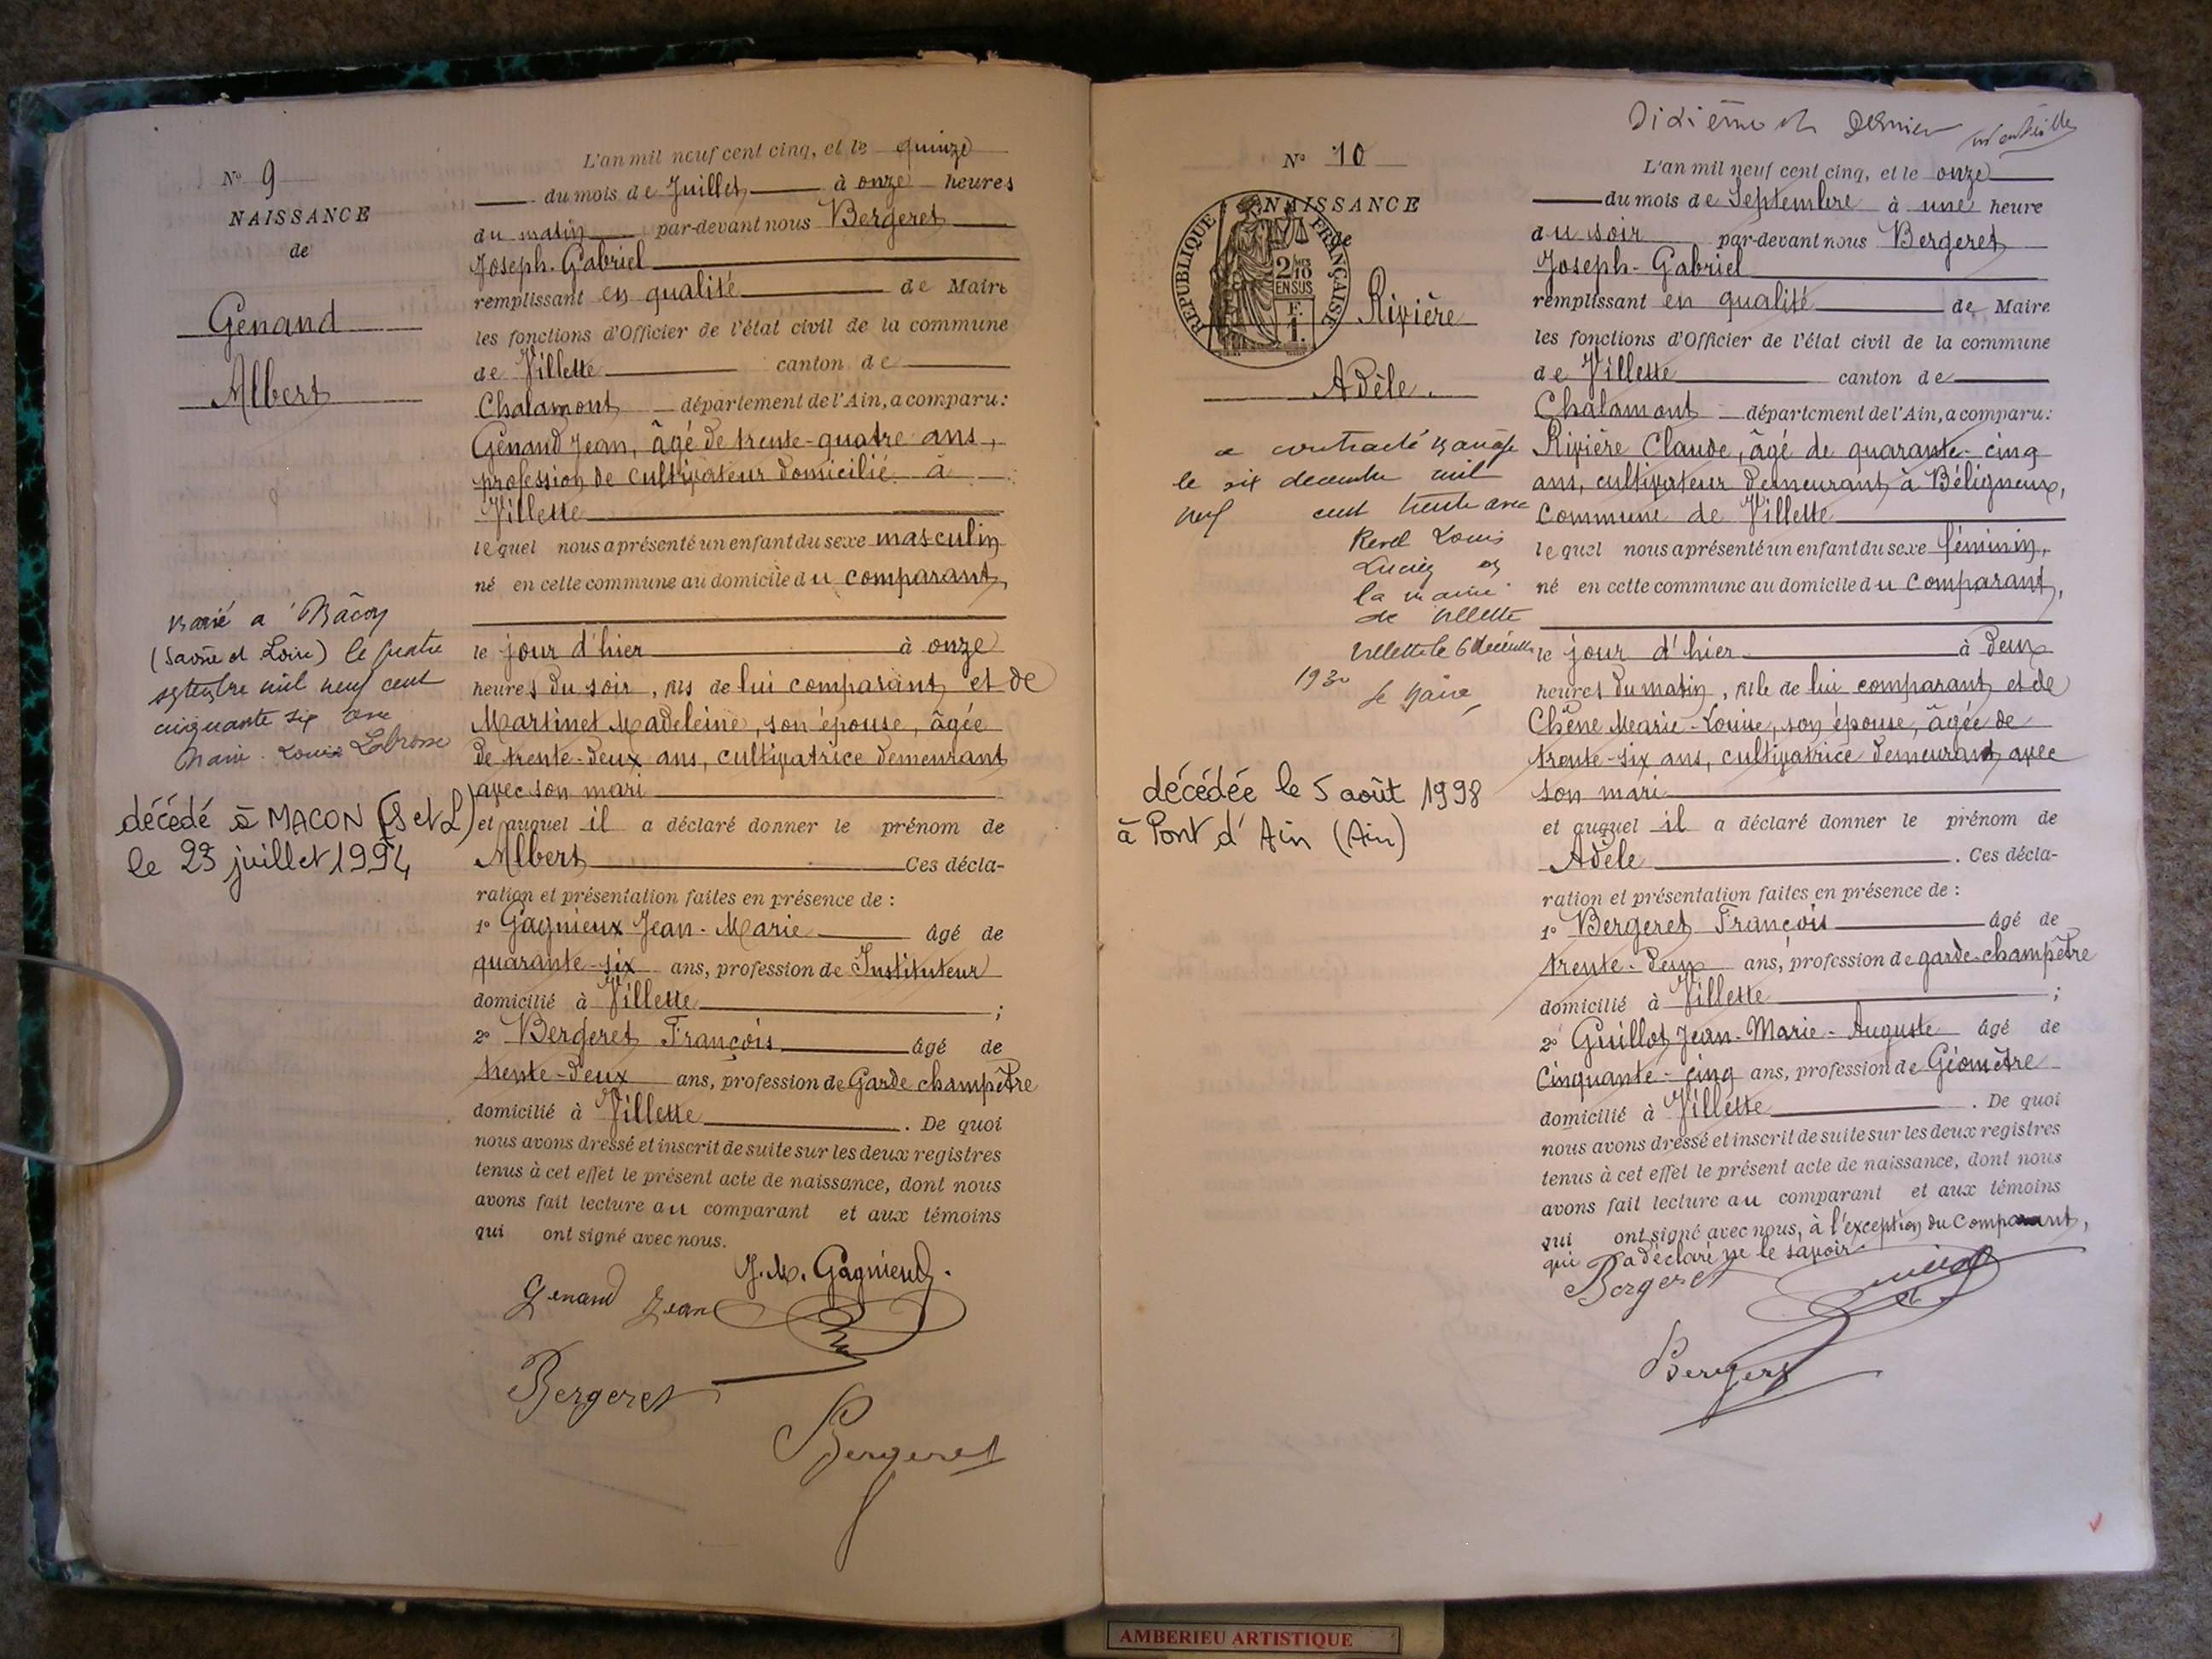 N° 9
NAISSANCE
de
Genand
Albert
Marié a Mâcon
(Saône et Loire) le quatre
septembre mil neuf cent
cinquante six avec
Marie-Louise Labrosse
décédé à MACON (S et L)
le 23 juillet 1994
L'an mil neuf cent cinq, et le quinze
du mois de Juillet à onze heures
du matin par-devant nous Bergeret
Joseph-Gabriel
remplissant en qualité de Maire
les fonctions d'Officier de l'état civil de la commune
de Villette canton de
Chalamont département de l'Ain, a comparu:
Genand Jean, âgé de trente-quatre ans,
profession de cultivateur domicilié à
Villette
lequel nous a présenté un enfant du sexe masculin
né en cette commune au domicile du comparant,
le jour d'hier à onze
heures du soir, fils de lui comparant et de
Martinet Madeleine, son épouse, âgée
de trente-deux ans, cultivatrice demeurant
avec son mari
et auquel il a déclaré donner le prénom de
Albert Ces décla-
ration et présentation faites en présence de :
1° Gagnieux Jean-Marie âgé de
quarante-six ans, profession de Instituteur
domicilié à Villette ;
2° Bergeret François âgé de
trente-deux ans, profession de Garde champêtre
domicilié à Villette . De quoi
nous avons dressé et inscrit de suite sur les deux registres
tenus à cet effet le présent acte de naissance, dont nous
avons fait lecture au comparant et aux témoins
qui ont signé avec nous.
J. M. Gagnieux.
Genand Jean
Bergeret
Bergeret
Dixième et dernier
N° 10
NAISSANCE
de
REPUBLIQUE FRANÇAISE
2/10
EN SUS
F.
1.
Rivière
Adèle.
a contracté mariage
le six decembre mil
neuf cent trente avec
Revel Louis
Lucien en
la mairie
de Villette
Villette le 6 décembre
1930
Le Maire,
décédée le 5 août 1998
à Pont d'Ain (Ain)
L'an mil neuf cent cinq, et le onze
du mois de Septembre à une heure
du soir par-devant nous Bergeret
Joseph-Gabriel
remplissant en qualité de Maire
les fonctions d'Officier de l'état civil de la commune
de Villette canton de
Chalamont département de l'Ain, a comparu:
Rivière Claude, âgé de quarante-cinq
ans, cultivateur demeurant à Béligneux,
Commune de Villette
lequel nous a présenté un enfant du sexe féminin,
né en cette commune au domicile du comparant,
le jour d'hier à deux
heures du matin, fille de lui comparant et de
Chêne Marie-Louise, son épouse, âgée de
trente-six ans, cultivatrice demeurant avec
son mari
et auquel il a déclaré donner le prénom de
Adèle . Ces décla-
ration et présentation faites en présence de :
1° Bergeret François âgé de
trente-deux ans, profession de garde-champêtre
domicilié à Villette ;
2° Guillot Jean-Marie-Auguste âgé de
Cinquante-cinq ans, profession de Géomètre
domicilié à Villette . De quoi
nous avons dressé et inscrit de suite sur les deux registres
tenus à cet effet le présent acte de naissance, dont nous
avons fait lecture au comparant et aux témoins
qui ont signé avec nous, à l'exception du comparant,
qui a déclaré ne le savoir.
Bergeret Guillot
Bergeret
AMBERIEU ARTISTIQUE